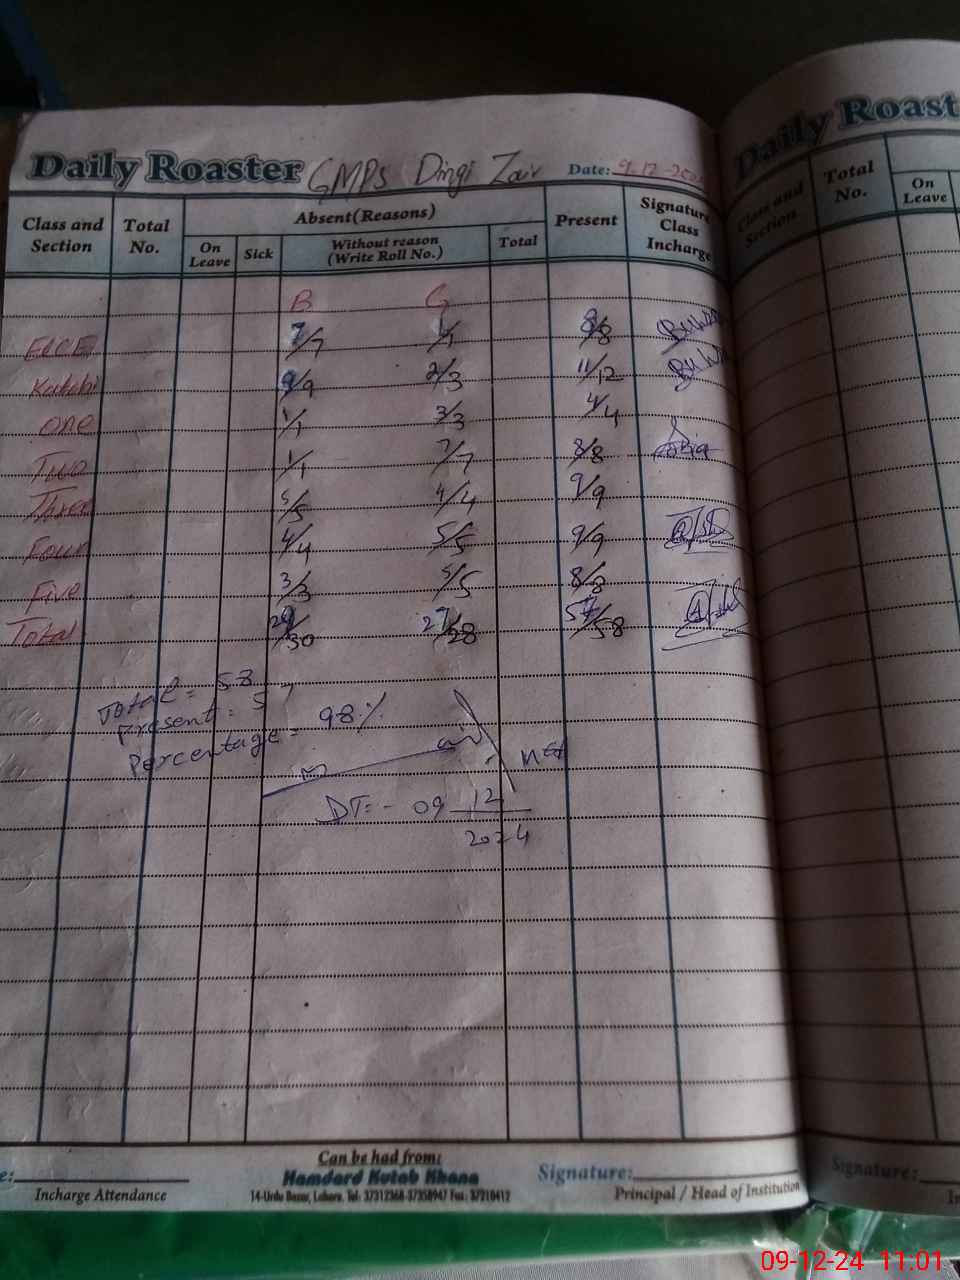 Daily Roaster GMPS Dingi Zair Date: 9.12.202
Class and Section Total No. Absent (Reasons) Present Signature Class Incharge
On Leave Sick Without reason (Write Roll No.) Total
B G
ECCE 7/7 1/1 8/8
Katchi 9/9 2/3 11/12
One 1/1 3/3 4/4
Two 1/1 7/7 8/8
Three 5/5 4/4 9/9
Four 4/4 5/5 9/9
Five 3/3 5/5 8/8
Total 29/30 27/28 57/58
Total = 58
Present = 57
Percentage = 98%
DT:- 09 12
2024
Can be had from:
Hamdard Kutab Khana
14-Urdu Bazar, Lahore. Tel: 37312368-37358947 Fax: 37210412
Incharge Attendance
Signature:
Principal / Head of Institution
Daily Roast
Class and Section Total No. On Leave
Signature:
09-12-24 11:01